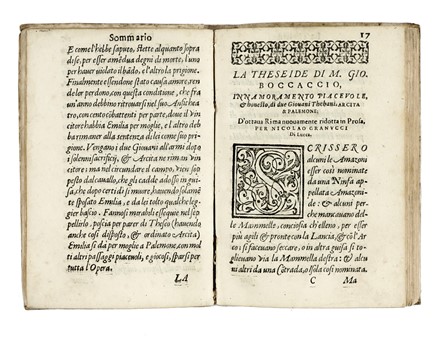 Sommario
E come l'hebbe saputo, stette alquanto sopra
di se, per esser amëdua degni di morte, l'uno
per hauer uiolato il bādo, e l'altro la prigione.
Finalmente essendone stato causa amore,
de lor perdono, con questa conditione, che fra
un'anno debbino ritrouarsi nel suo Ansichea
tro, con cento cōbattenti per parte, doue il vin
citor habbia Emilia per moglie, e l altro deb
ba rimaner alla sentenza di lei come suo pri
gione. Vengano i due Giouani all'armi dopo
i solenni sacrificij, & Arcita ne riman vin
citore: ma nel circundare al campo, vien sop
posto dal cauallo, che gli cadde adosso in gui
sa, che dopo certi dì si muore, hauendo solamē
te sposato Emilia, e da lei tolto qualche leg
gier bascio. Fannosi mirabili essequie nel sep
pellirlo, poscia per parer di Theseo (hauendo
anche così disposto, & ordinato Arcita)
Emilia si da per moglie a Palemone, con mol
ti altri passaggi piaceuoli, e giocosi, sparsi per
tutta l'Opera.
LA
17
LA THESEIDE DI M. GIO.
BOCCACCIO,
INNAMORAMENTO PIACEVOLE,
& honesto, di due Giouani Thebani, ARCITA
& PALEMONE;
D'ottaua Rima nuouamente ridotta in Prosa,
PER NICOLAO GRANVCCI
di Lucca.
SCRISSERO
alcuni le Amazoni
esser così nominate
da una Ninfa ap
pellata Amazoni-
de: & alcuni per-
che mancauano del-
le Mammelle, conciosia ch'elleno, per esser
più agili & pronte con la Lancia, & cō l'Ar-
co: si faceuano seccare, o in altra guisa si to-
glieuano via la Mammella destra: & alcu
ni altri da una Cōtrada, o Isola così nominata.
C Ma